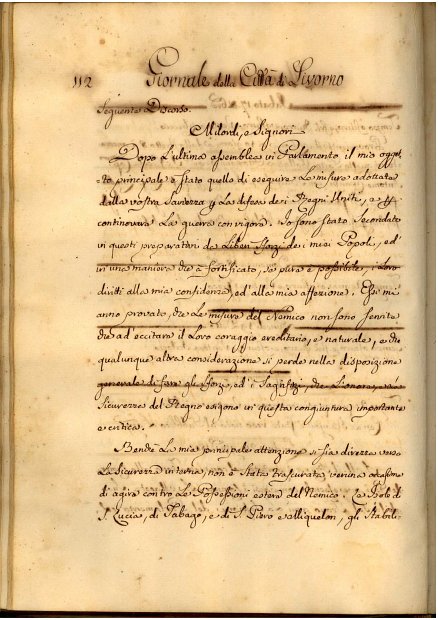 112 Giornale della Città di Livorno
Seguente Discorso.
Milordi, e Signori
Dopo l'ultima assemblea in Parlamento il mio ogget,
to principale è stato quello di eseguire le misure adottate
dalla vostra Saviezza per la difesa dei Regni Uniti, e per
continovare la guerra con vigore. Io sono stato Secondato
in questi preparativi da liberi sforzi dei miei Popoli, ed'
in una maniera che à fortificato, se pure è possibile, i loro
diritti alla mia confidenza, ed'alla mia affezione. Essi mi
anno provato, che le misure del Nemico non sono servite
che ad'eccitare il loro coraggio ereditario, e naturale, e che
qualunque altra considerazione si perde nella disposizione
generale di fare gli sforzi, ed'i Sagrifizj, che l'onore, e la
Sicurezza del Regno esigono in questa congiuntura importante
e critica.
Benchè la mia principale attenzione si sia diretta verso
la Sicurezza interna, non è stata trascurata veruna occasione
di agire contro le Possessioni estere del Nemico. Le Isole di
S. Lucia, di Tabago, e di S. Piero e Miquelon, gli Stabili-